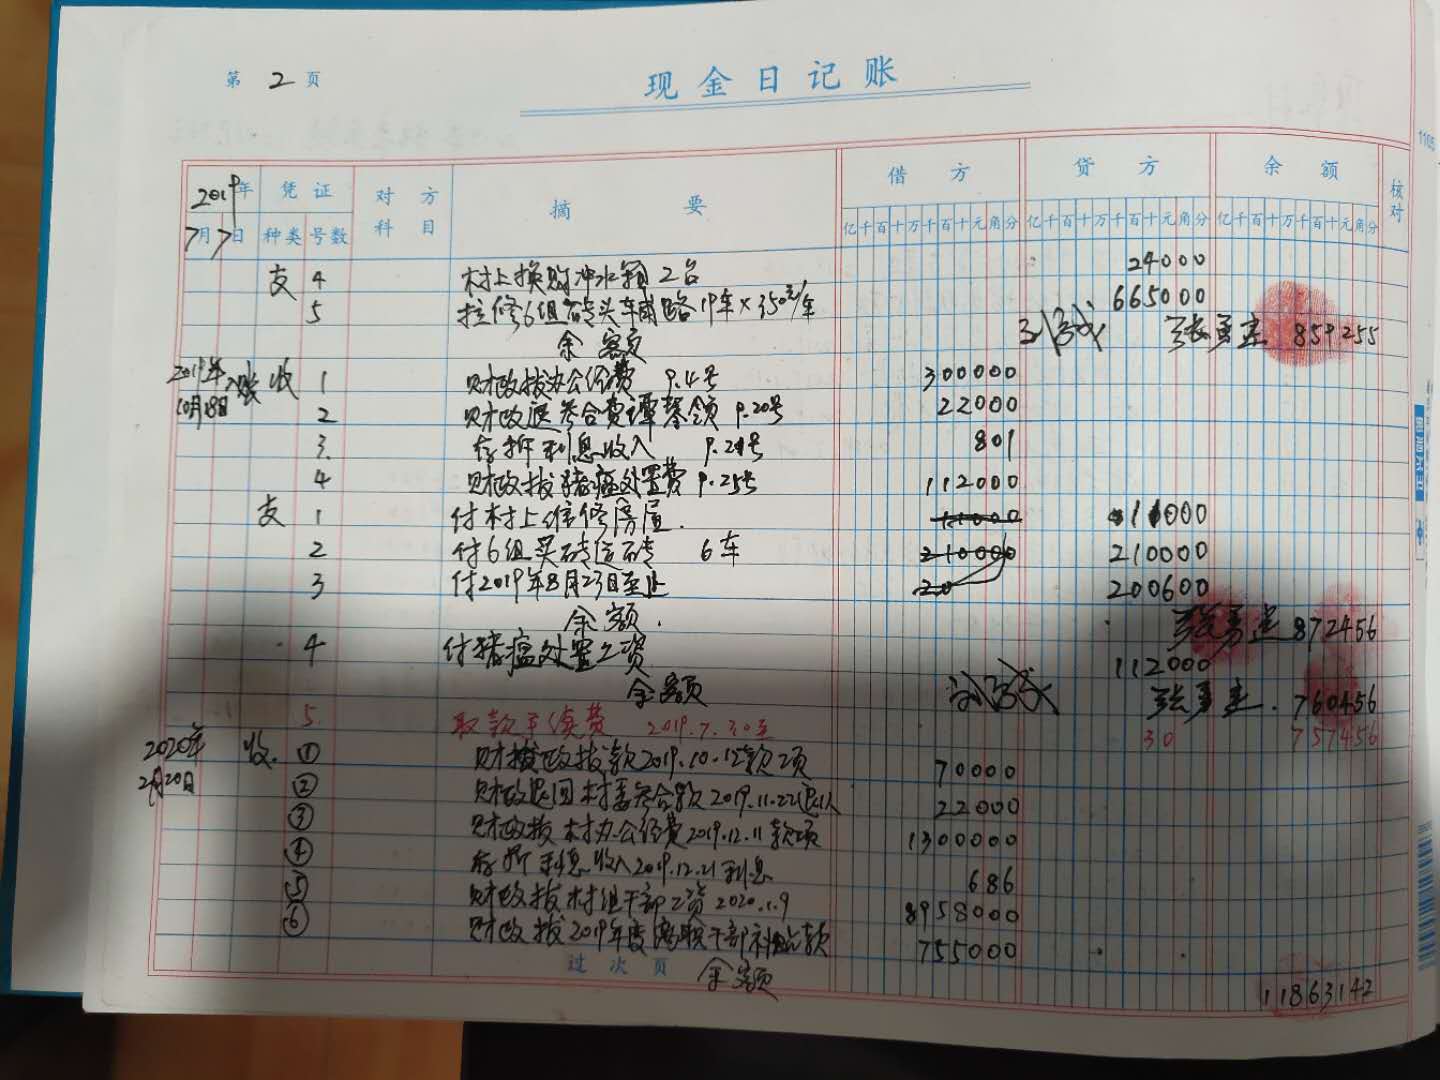 第 2 页
现金日记账
2019年 凭证 对方 摘要 借方 贷方 余额 核对
7月7日 种类 号数 科目 亿千百十万千百十元角分 亿千百十万千百十元角分 亿千百十万千百十元角分
支 4 村上换购冲水箱 2台 24000
5 拉修6组砖头辅路 19车×350元/车 665000
余额 859255
2019年10月18日 入账 收 1 财政拨办公经费 9.4号 300000
2 财政退参合费谭琴领 9.20号 22000
3 存折利息收入 9.21号 801
4 财政拨猪瘟处置费 9.25号 112000
支 1 付村上维修房屋 11000 11000
2 付6组买砖运砖 6车 210000 210000
3 付2019年8月23日至止 20 200600
余额 872456
4 付猪瘟处置工资 112000
余额 760456
5 取款手续费 2019.7.30至 30 757456
2020年2月20日 收 ① 财政拨款2019.10.12款项 70000
② 财政退回村委参合款2019.11.22 22000
③ 财政拨村办公经费2019.12.11款项 1300000
④ 存折利息收入2019.12.21利息 686
⑤ 财政拨村组干部工资 2020.1.9 8958000
⑥ 财政拨2019年度离职干部补贴款 755000
过次页 余额 11863142